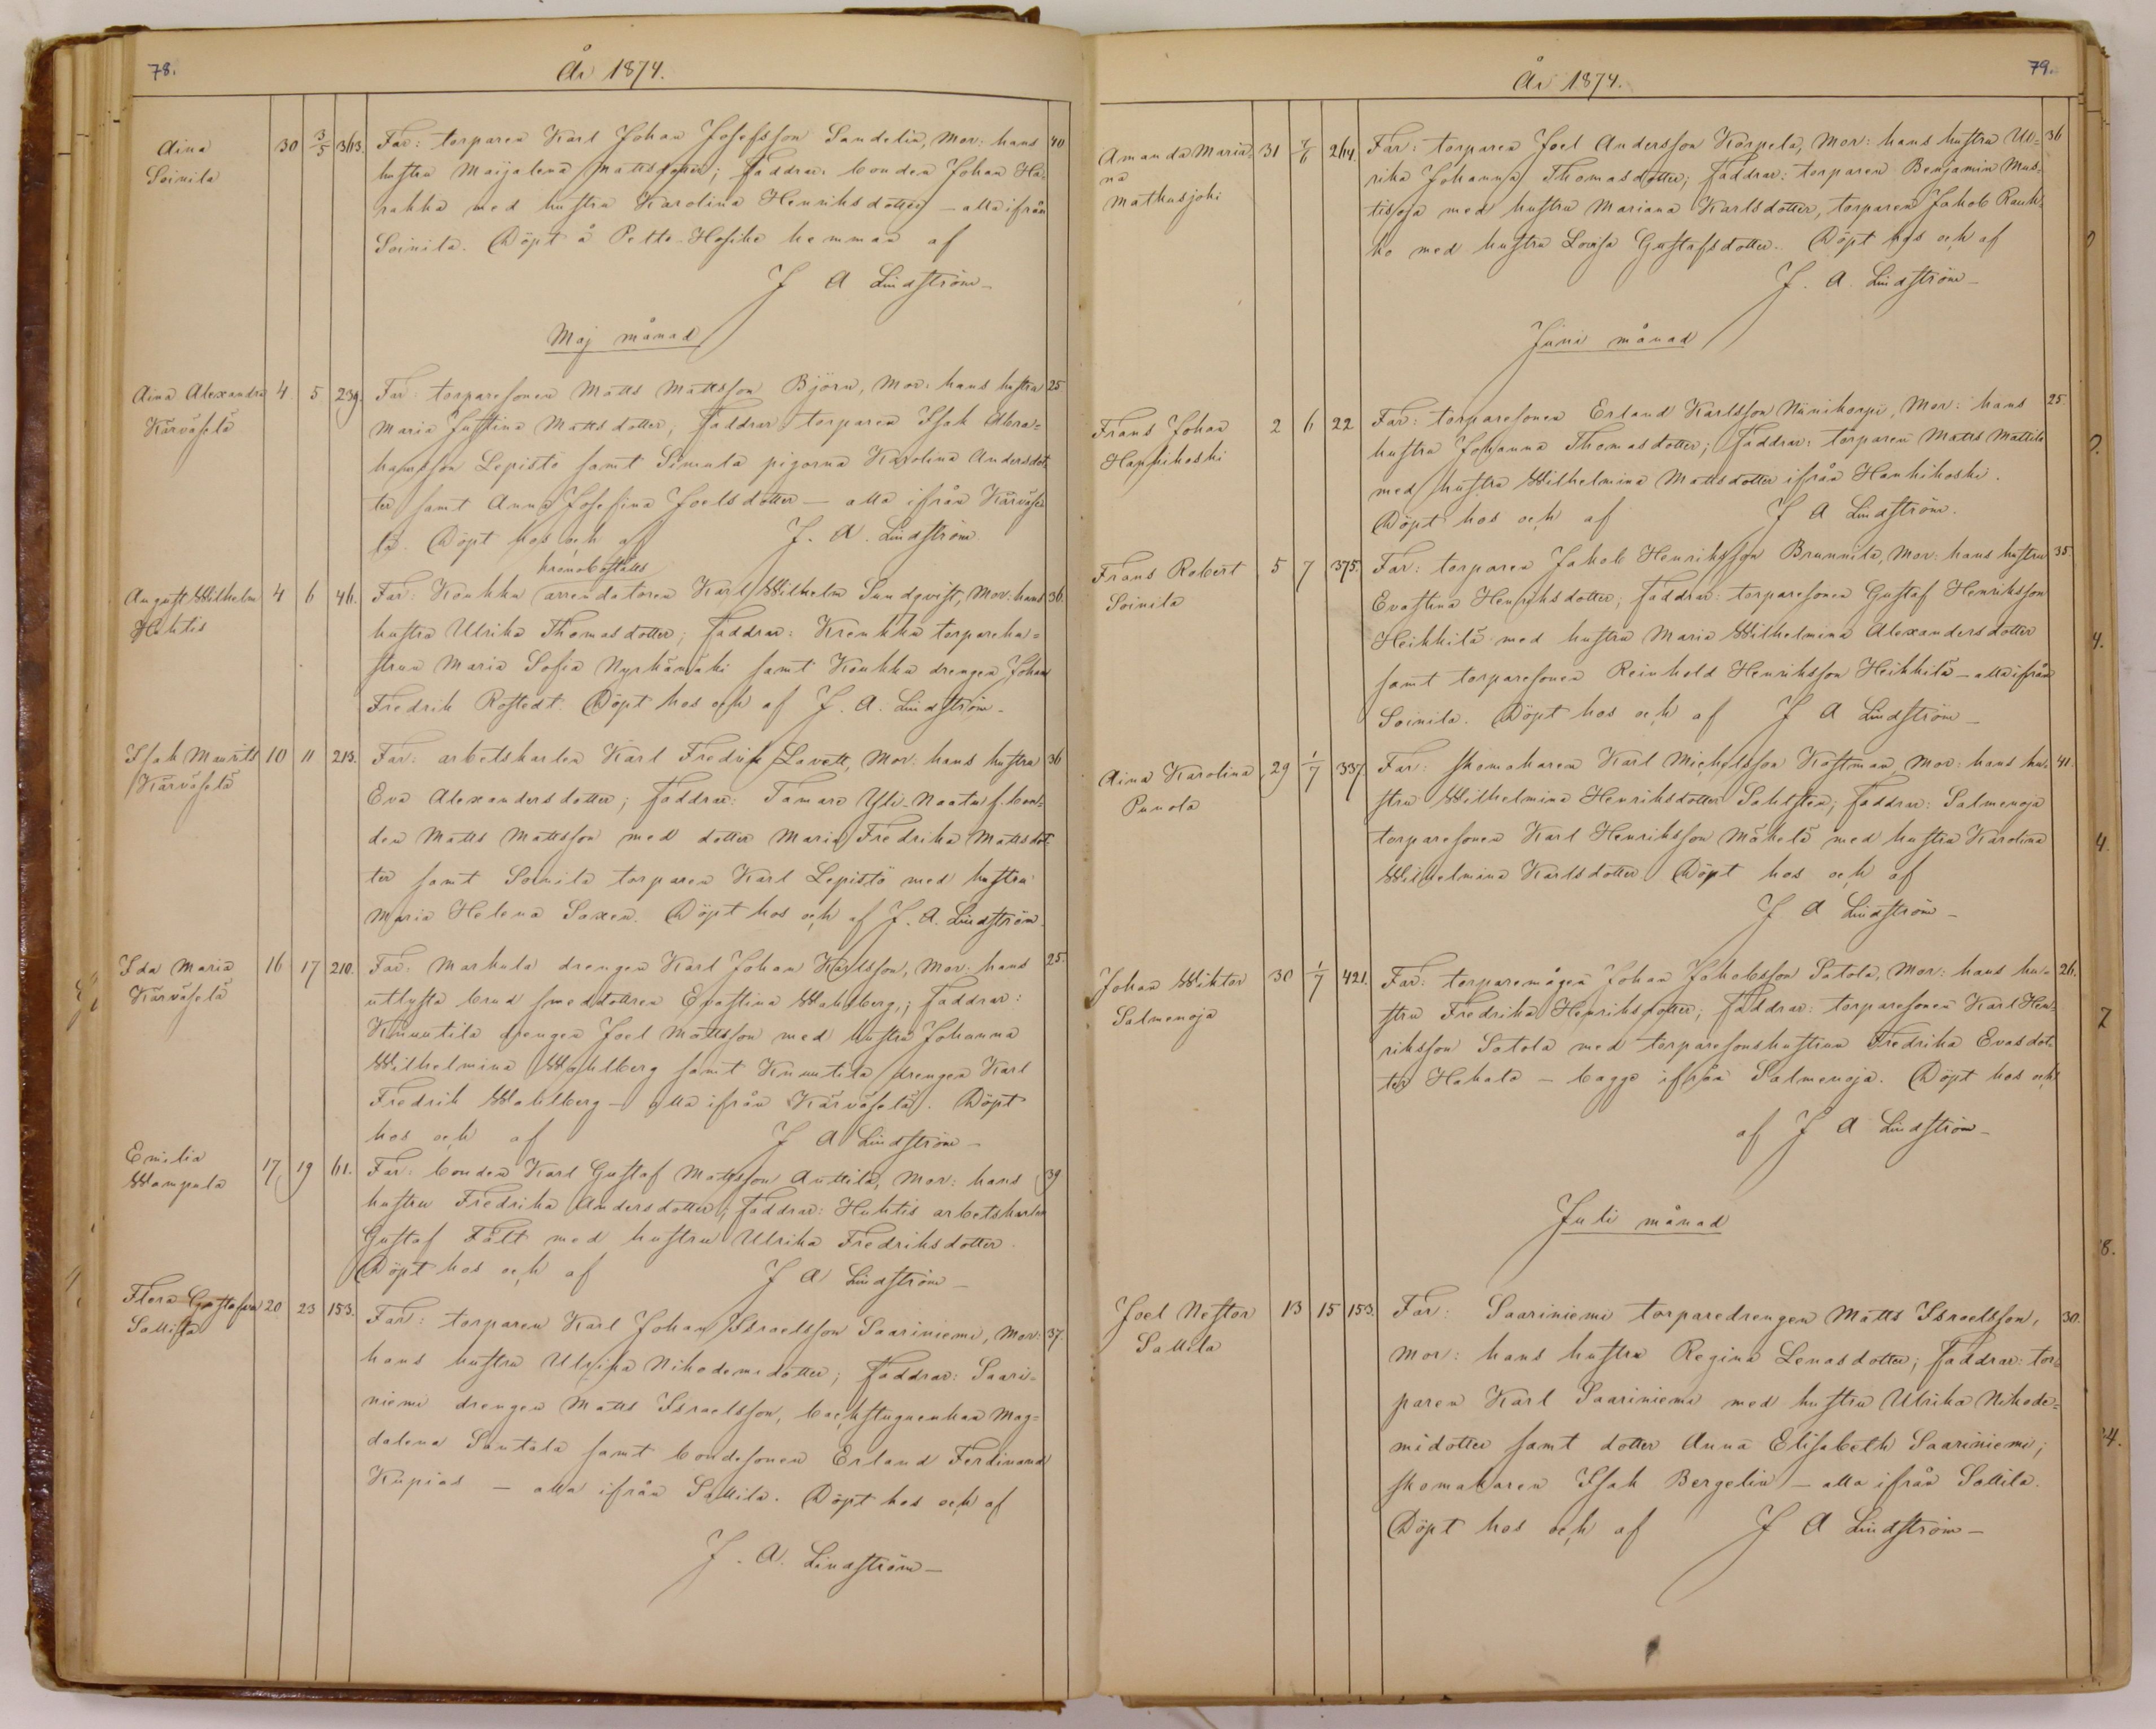 78.
År 1874.
Aina
Soinila
30 3/5 363. Far: torparen Karl Johan Josefsson Sandelin, Mor: hans 40
hustru Maijalena Mattsdotter; Faddrar: bonden Johan Ha-
rakka med hustru Karolina Henriksdotter – alla ifrån
Soinila. Döpt å hemman af
J A Lindström –
Maj månad
Aina Alexandra 4 5 239. Far: torparesonen Matts Mattsson Björn, Mor: hans hustru 25
Kärväselä
Maria Justina Mattsdotter; Faddrar torparen Isak Abra-
hamsson Lepistö samt Simula pigorna Karolina Andersdot-
ter samt Anna Josefina Joelsdotter – alla ifrån Kärväse-
lä. Döpt hos och af J. A. Lindström
kronobostälts
August Wilhelm 4 6 46. Far: Konkka arrendatoren Karl Wilhelm Sundqvist, Mor: hans 36.
Huhtis
hustru Ulrika Thomasdotter; Faddrar: Krenkka torparehu-
strun Maria Sofia Nyrkämäki samt Konkka drengen Johan
Fredrik Rostedt. Döpt hos och af J. A. Lindström –
Isak Maurits 10 11 213. Far: arbetskarlen Karl Fredrik Lavett, Mor: hans hustru 36
Kärväselä
Eva Alexandersdotter; Faddrar: Tamare Yli-Naatu f. bon-
den Matts Mattsson med dotter Maria Fredrika Mattsdot-
ter samt Soinila torparen Karl Lepistö med hustru
Maria Helena Saxen. Döpt hos och af J. A. Lindström.
Ida Maria 16 17 210. Far: Markula drengen Karl Johan Karlsson, Mor: hans 25.
Kärväselä
utlysta brud smeddottren Evastina Wahlberg; Faddrar:
Knuutila drengen Joel Mattsson med hustru Johanna
Wilhelmina Wahlberg samt Knuutila drengen Karl
Fredrik Wahlberg – alla ifrån Kärväselä. Döpt
hos och af J A Lindström –
Emilia
Wampula
17 19 61. Far: bonden Karl Gustaf Mattsson Anttila, Mor: hans 39
hustru Fredrika Andersdotter; Faddrar: Huhtis arbetskarlen
Gustaf Fält med hustru Ulrika Fredriksdotter.
Döpt hos och af J A Lindström –
Flora Gustafva 20 23 153. Far: torparen Karl Johan Israelsson Saariniemi, Mor: 37.
Sallila
hans hustru Ulrika Nikodemidotter; Faddrar: Saari-
niemi drengen Matts Israelsson, backstuguenkan Mag-
dalena Santala samt bondesonen Erland Ferdinand
Kupias – alla ifrån Sallila. Döpt hos och af
J. A. Lindström –
79.
År 1874.
Amanda Maria-
na
Matkusjoki
31 7/6 264. Far: torparen Joel Andersson Korpela, Mor: hans hustru Ul- 36
rika Johanna Thomasdotter; Faddrar: torparen Benjamin Mus-
tisoja med hustru Mariana Karlsdotter, torparen Jakob Rauk-
ko med hustru Lovisa Gustafsdotter. Döpt hos och af
J. A. Lindström –
Juni månad
Frans Johan 2 6 22 Far: torparesonen Erland Karlsson Niinikorpi, Mor: hans 25.
Hankikoski
hustru Johanna Thomasdotter; Faddrar: torparen Matts Mattila
med hustru Wilhelmina Mattsdotter ifrån Hankikoski.
Döpt hos och af J A Lindström.
Frans Robert 5 7 375. Far: torparen Jakob Henriksson Brunnila, Mor: hans hustru 35.
Soinila
Evastina Henriksdotter; Faddrar: torparesonen Gustaf Henriksson
Heikkilä med hustru Maria Wilhelmina Alexandersdotter
samt torparesonen Reinhold Henriksson Heikkilä – alla ifrån
Soinila. Döpt hos och af J A Lindström –
Aina Karolina 29 1/7 337. Far: skomakaren Karl Michelsson Kostman, Mor: hans hu- 41.
Punola
stru Wilhelmina Henriksdotter Sahlsten; Faddrar: Salmenoja
torparesonen Karl Henriksson Mäkelä med hustru Karolina
Wilhelmina Karlsdotter. Döpt hos och af
J A Lindström –
Johan Wiktor 30 1/7 421. Far: torparemågen Johan Jakobsson Satola, Mor: hans hu- 26.
Salmenoja
stru Fredrika Henriksdotter; Faddrar: torparesonen Karl Hen-
riksson Satola med torparesonshustrun Fredrika Evasdot-
ter Hakala – bagge ifrån Salmenoja. Döpt hos och
af J A Lindström –
Juli månad
Joel Nestor 13 15 153. Far: Saariniemi torparedrengen Matts Israelsson, 30.
Sallila
Mor: hans hustru Regina Lenasdotter; Faddrar: tor-
paren Karl Saariniemi med hustru Ulrika Nikode-
midotter samt dotter Anna Elisabeth Saariniemi;
skomakaren Isak Bergelin – alla ifrån Sallila.
Döpt hos och af J A Lindström –